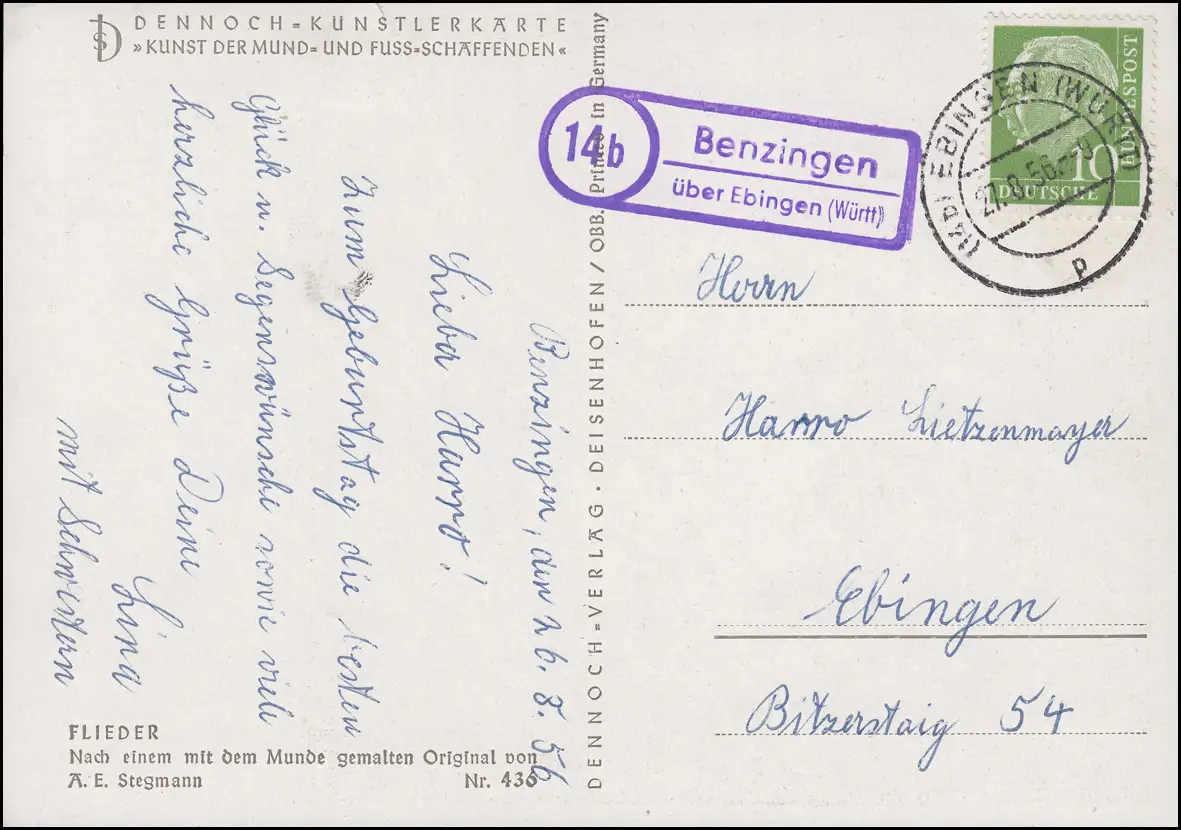 DENNOCH=KÜNSTLERKARTE
»KUNST DER MUND= UND FUSS=SCHAFFENDEN«
Benzingen, den 26. 8. 56
Lieber Harro!
Zum Geburtstag die besten
Glück u. Segenswünsche sowie viele
herzliche Grüße Deine
Lina
mit Schwestern
FLIEDER
Nach einem mit dem Munde gemalten Original von
A. E. Stegmann Nr. 436
DENNOCH=VERLAG · DEISENHOFEN / OBB. Printed in Germany
14b
Benzingen
über Ebingen (Württ)
(14b) EBINGEN (WÜRTT)
27.8.56
p
DEUTSCHE
BUNDESPOST
10
Herrn
Harro Lietzenmayer
Ebingen
Bitzerstaig 54